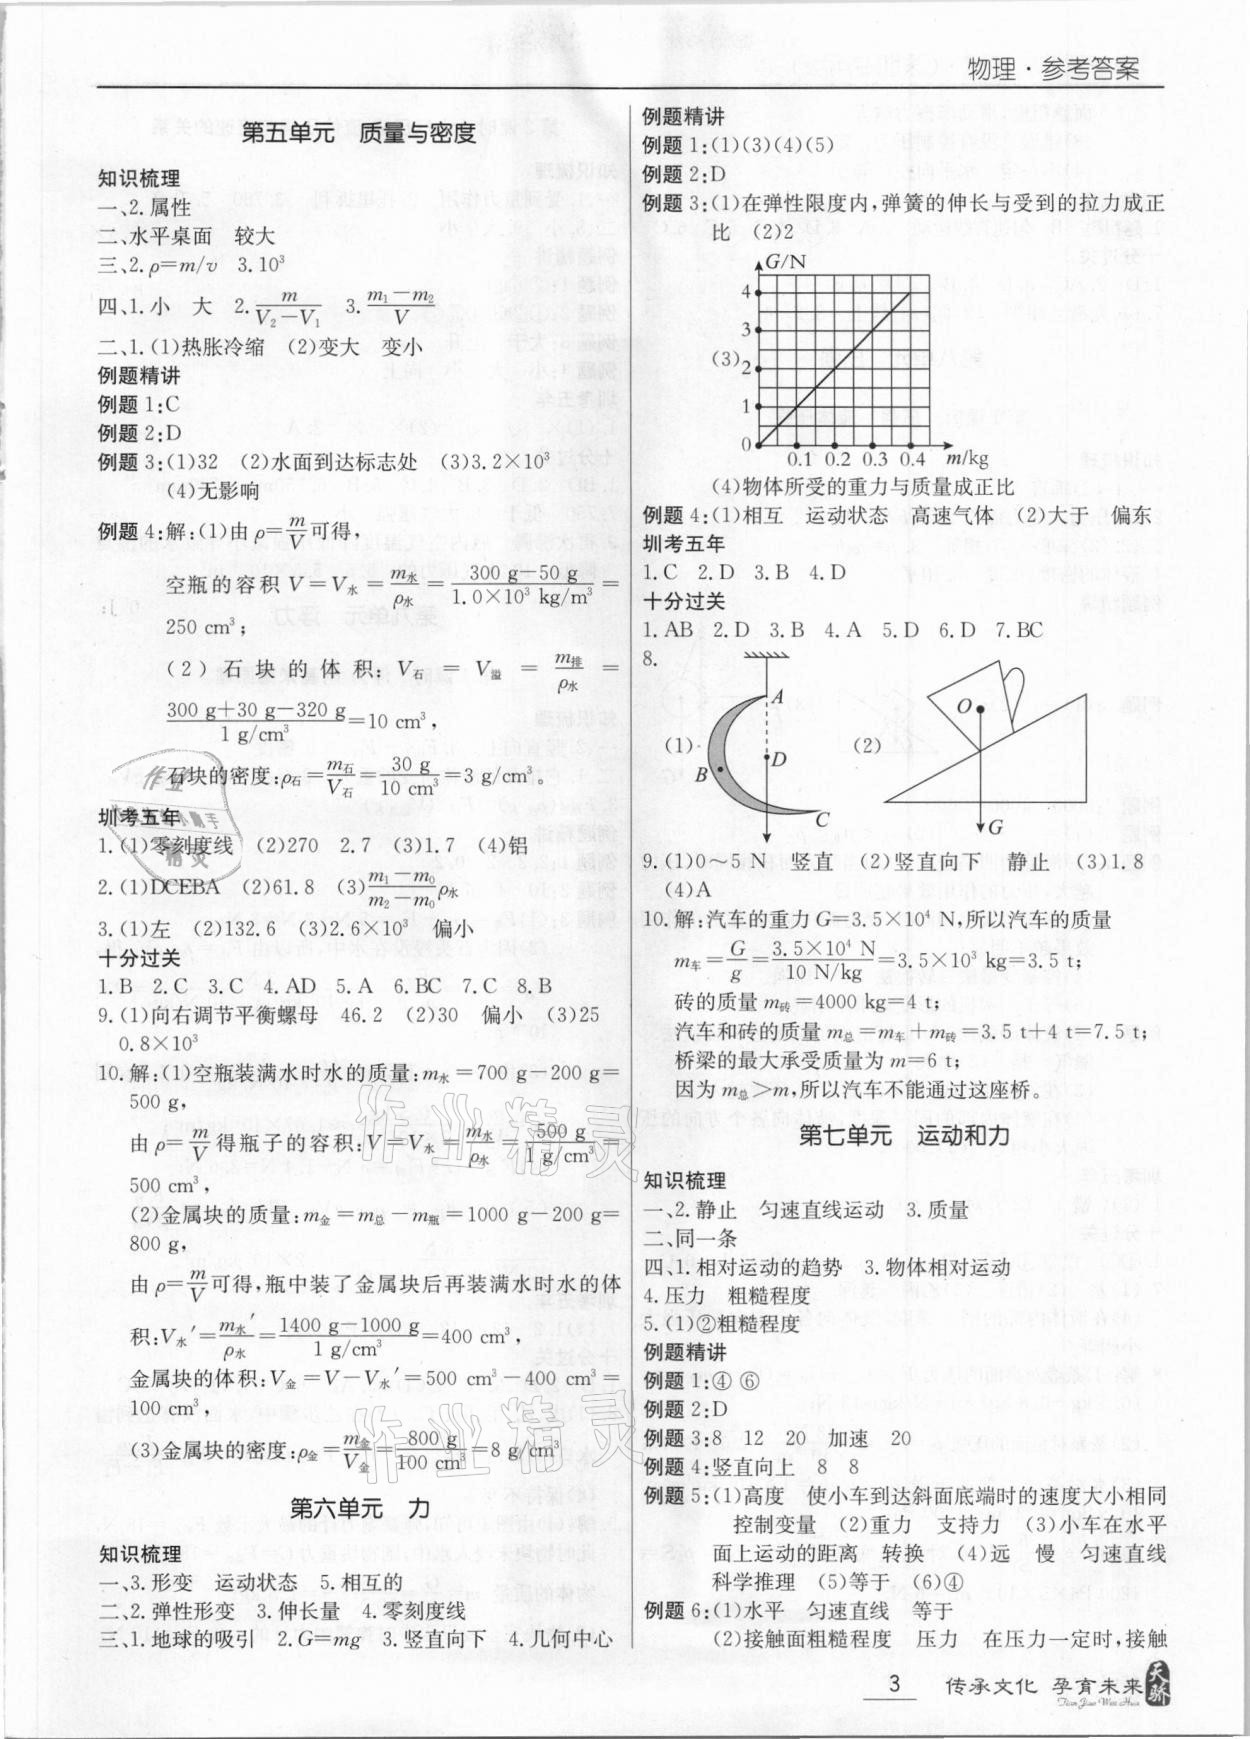 物理·参考答案
第五单元　质量与密度
知识梳理
一、2.属性
二、水平桌面　较大
三、2.ρ=m/v　3.10³
四、1.小　大　2.m/(V₂-V₁)　3.(m₁-m₂)/V
二、1.(1)热胀冷缩　(2)变大　变小
例题精讲
例题1:C
例题2:D
例题3:(1)32　(2)水面到达标志处　(3)3.2×10³
(4)无影响
例题4:解:(1)由ρ=m/V可得,
空瓶的容积V=V水=m水/ρ水=(300 g-50 g)/(1.0×10³ kg/m³)=
250 cm³;
(2)石块的体积:V石=V溢=m排/ρ水=
(300 g+30 g-320 g)/(1 g/cm³)=10 cm³,
石块的密度:ρ石=m石/V石=30 g/10 cm³=3 g/cm³。
圳考五年
1.(1)零刻度线　(2)270　2.7　(3)1.7　(4)铝
2.(1)DCEBA　(2)61.8　(3)(m₁-m₀)/(m₂-m₀)ρ水
3.(1)左　(2)132.6　(3)2.6×10³　偏小
十分过关
1.B　2.C　3.C　4.AD　5.A　6.BC　7.C　8.B
9.(1)向右调节平衡螺母　46.2　(2)30　偏小　(3)25
0.8×10³
10.解:(1)空瓶装满水时水的质量:m水=700 g-200 g=
500 g,
由ρ=m/V得瓶子的容积:V=V水=m水/ρ水=500 g/(1 g/cm³)=
500 cm³,
(2)金属块的质量:m金=m总-m瓶=1000 g-200 g=
800 g,
由ρ=m/V可得,瓶中装了金属块后再装满水时水的体
积:V水′=m水′/ρ水=(1400 g-1000 g)/(1 g/cm³)=400 cm³,
金属块的体积:V金=V-V水′=500 cm³-400 cm³=
100 cm³,
(3)金属块的密度:ρ金=m金/V金=800 g/100 cm³=8 g/cm³
第六单元　力
知识梳理
一、3.形变　运动状态　5.相互的
二、2.弹性形变　3.伸长量　4.零刻度线
三、1.地球的吸引　2.G=mg　3.竖直向下　4.几何中心
例题精讲
例题1:(1)(3)(4)(5)
例题2:D
例题3:(1)在弹性限度内,弹簧的伸长与受到的拉力成正
比　(2)2
(3)
G/N
4
3
2
1
0
0.1 0.2 0.3 0.4　m/kg
(4)物体所受的重力与质量成正比
例题4:(1)相互　运动状态　高速气体　(2)大于　偏东
圳考五年
1.C　2.D　3.B　4.D
十分过关
1.AB　2.D　3.B　4.A　5.D　6.D　7.BC
8.
(1)
A
B
D
C
(2)
O
G
9.(1)0~5 N　竖直　(2)竖直向下　静止　(3)1.8
(4)A
10.解:汽车的重力G=3.5×10⁴ N,所以汽车的质量
m车=G/g=(3.5×10⁴ N)/(10 N/kg)=3.5×10³ kg=3.5 t;
砖的质量m砖=4000 kg=4 t;
汽车和砖的质量m总=m车+m砖=3.5 t+4 t=7.5 t;
桥梁的最大承受质量为m=6 t;
因为m总>m,所以汽车不能通过这座桥。
第七单元　运动和力
知识梳理
一、2.静止　匀速直线运动　3.质量
二、同一条
四、1.相对运动的趋势　3.物体相对运动
4.压力　粗糙程度
5.(1)②粗糙程度
例题精讲
例题1:④⑥
例题2:D
例题3:8　12　20　加速　20
例题4:竖直向上　8　8
例题5:(1)高度　使小车到达斜面底端时的速度大小相同
控制变量　(2)重力　支持力　(3)小车在水平
面上运动的距离　转换　(4)远　慢　匀速直线
科学推理　(5)等于　(6)④
例题6:(1)水平　匀速直线　等于
(2)接触面粗糙程度　压力　在压力一定时,接触
3
传承文化 孕育未来
天骄
Tian Jiao Wen Hua
作业精灵
作业精灵
作业
精灵